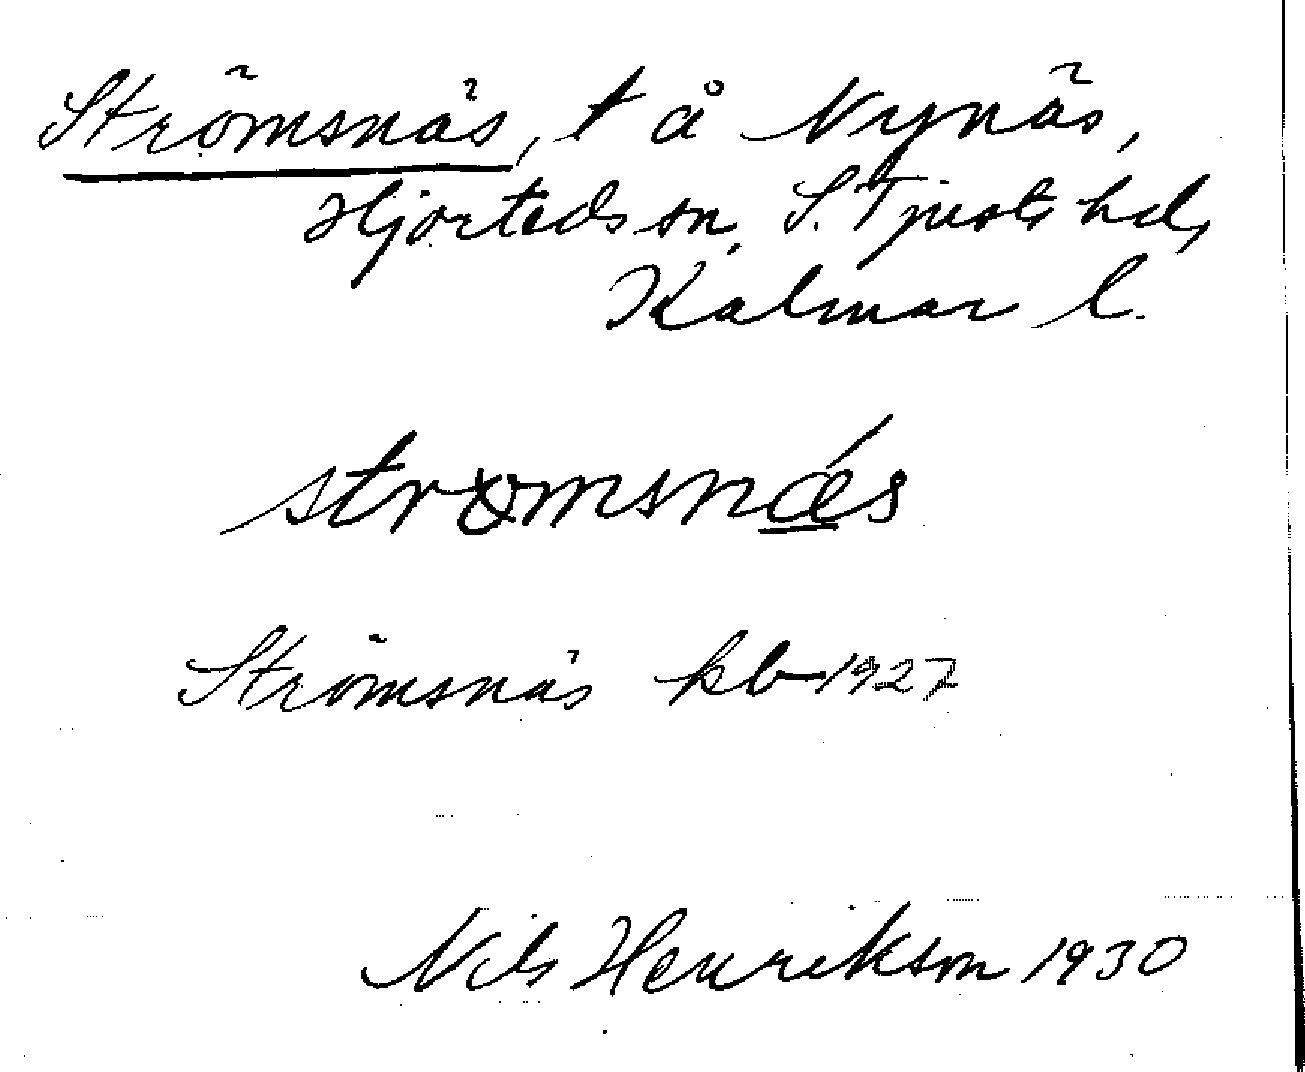 Strömsnäs, t å Nynäs,
Hjorteds sn, S. Tjusts hd,
Kalmar l.
strømsnǽs
Strömsnäs kb 1927
Nils Henrikson 1930